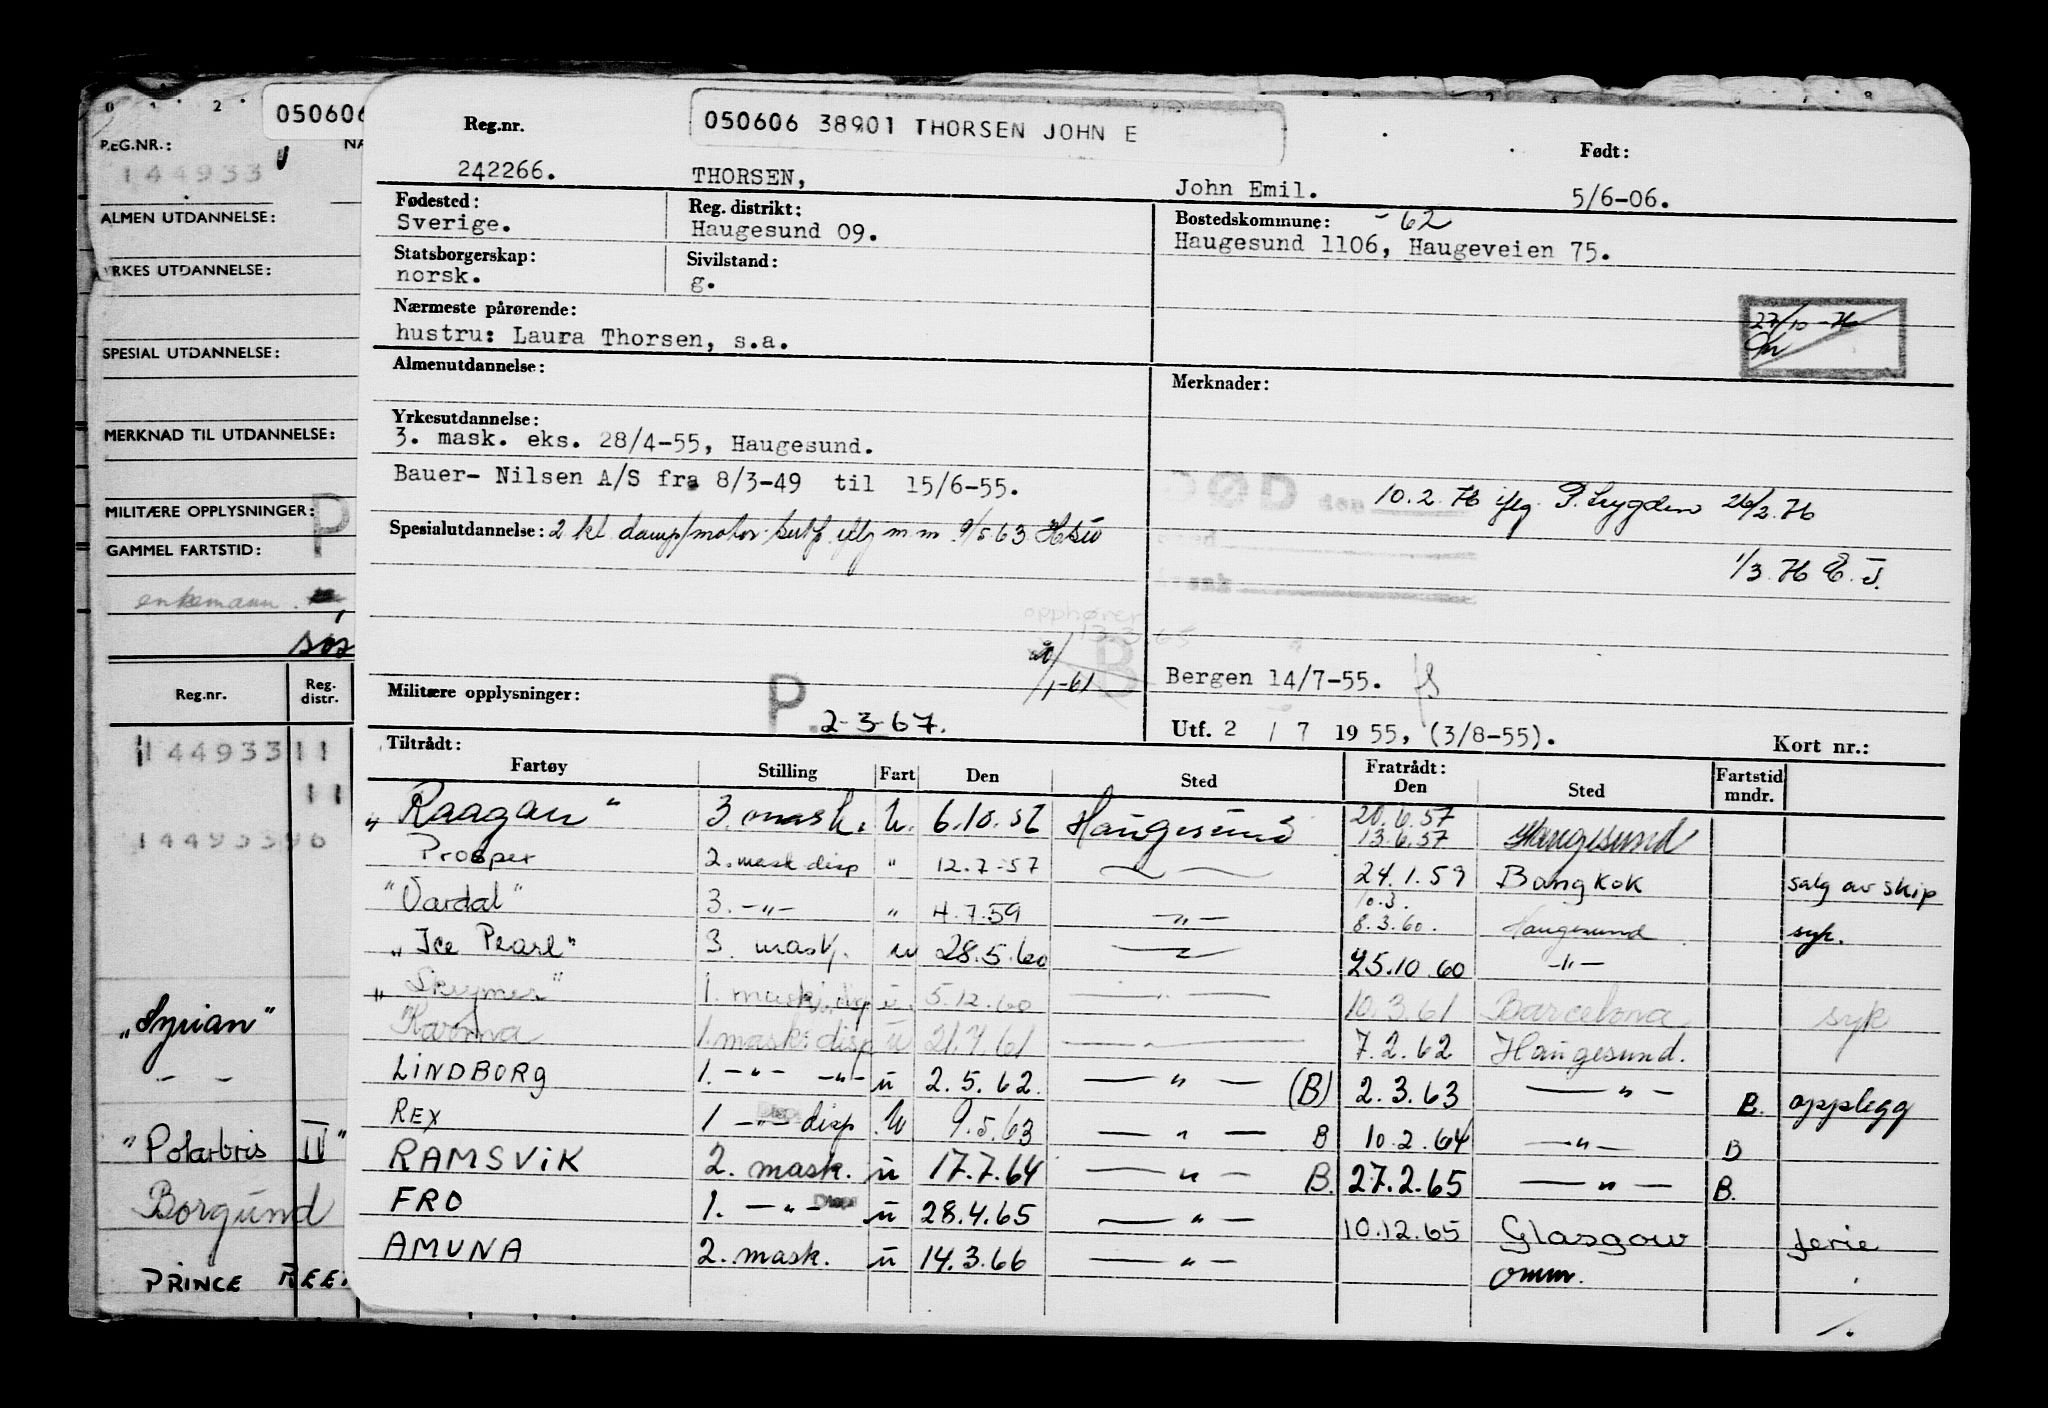 050606
REG.NR.:
144933
ALMEN UTDANNELSE:
YRKES UTDANNELSE:
SPESIAL UTDANNELSE:
MERKNAD TIL UTDANNELSE:
MILITÆRE OPPLYSNINGER: P
GAMMEL FARTSTID:
enkemann
Reg.nr. Reg. distr.
144933 11
11
"Syrian"
"Polarbris IV"
Borgund
PRINCE REE
Reg.nr. 050606 38901 THORSEN JOHN E Født:
242266. THORSEN, John Emil. 5/6-06.
Fødested: Reg. distrikt: Bostedskommune: -62
Sverige. Haugesund 09. Haugesund 1106, Haugeveien 75.
Statsborgerskap: Sivilstand:
norsk. g.
Nærmeste pårørende:
hustru: Laura Thorsen, s.a.
27/10-76
Almenutdannelse: Merknader:
Yrkesutdannelse:
3. mask. eks. 28/4-55, Haugesund.
Bauer- Nilsen A/S fra 8/3-49 til 15/6-55.
DØD 10.2.76 iflg. P. Lygden 26/2.76
Spesialutdannelse: 2 kl damp/motor sertf. iflg m m 9/5 63 Hsu
1/3.76 E.J.
opphører
13.3.65
B
1/1-61
Bergen 14/7-55.
Militære opplysninger: P. 2-3-67.
Utf. 2 / 7 1955, (3/8-55). Kort nr.:
Tiltrådt: Fratrådt:
Fartøy Stilling Fart Den Sted Den Sted Fartstid mndr.
"Raagan" 3. mask. u. 6.10.56 Haugesund 20.6.57 13.6.57 Haugesund
Prosper 2. mask disp " 12.7-57 24.1.59 Bangkok salg av skip
"Vardal" 3. -"- " 4.7.59 -"- 10.3. 8.3.60. Haugesund syk.
"Ice Pearl" 3. mask. u 28.5.60 25.10.60 -"-
"Skrymer" 1. mask. disp u. 5.12.60 -"- 10.3.61 Barcelona syk
Karma 1. mask. disp u 21.4.61 -"- 7.2.62 Haugesund.
LINDBORG 1. -"- -"- u 2.5.62. -"- (B) 2.3.63 -"- B. opplegg
REX 1 -"- disp U 9.5.63 -"- B 10.2.64 -"- B
RAMSVIK 2. mask. u 17.7.64 -"- B. 27.2.65 -"- B.
FRO 1. -"- Disp u 28.4.65 -"- 10.12.65 Glasgow ferie
AMUNA 2. mask. u 14.3.66 -"- omm.